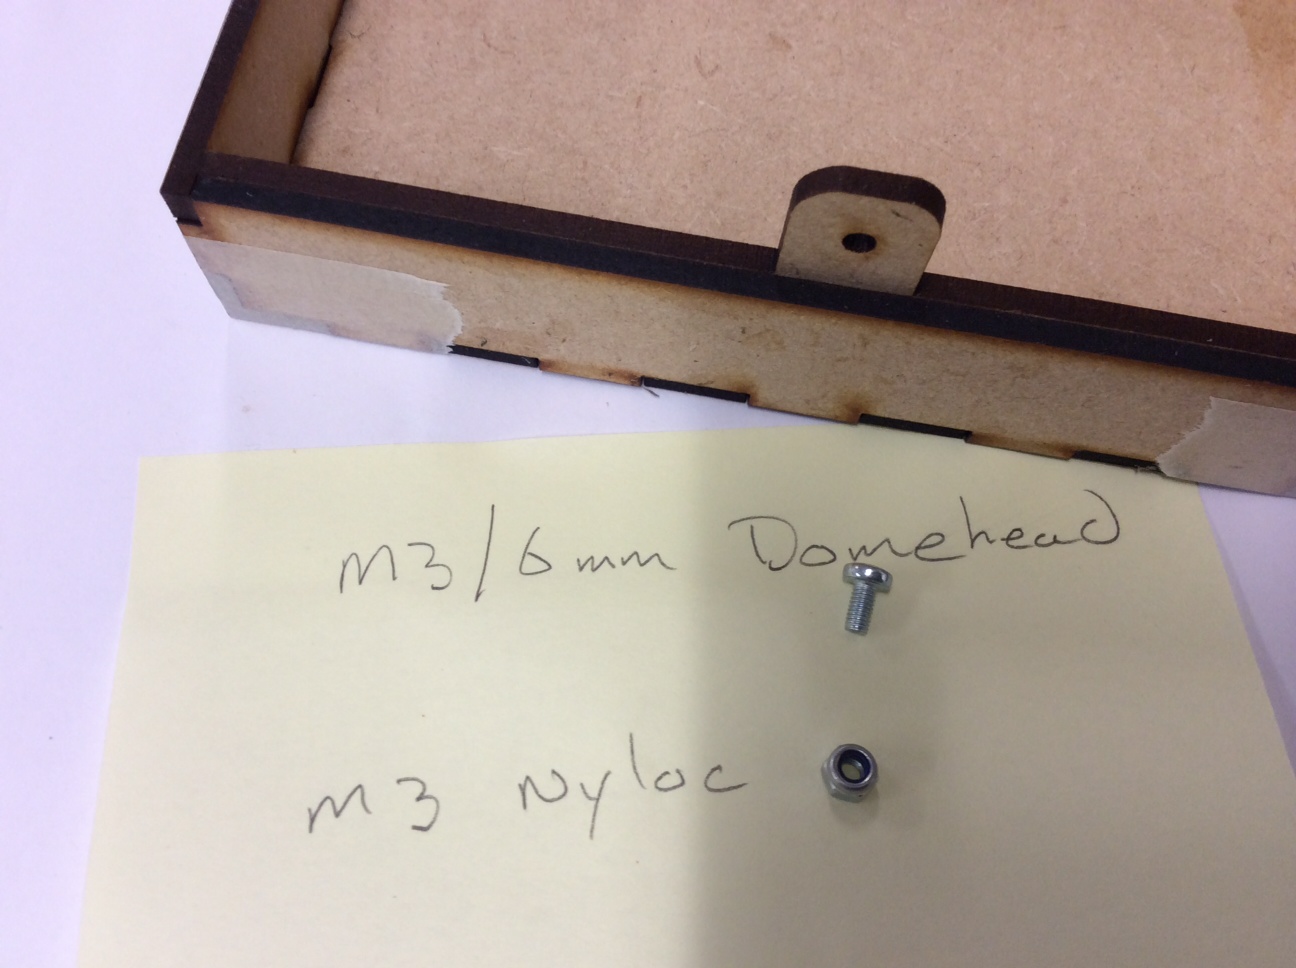 M3/6mm Domehead
M3 Nyloc